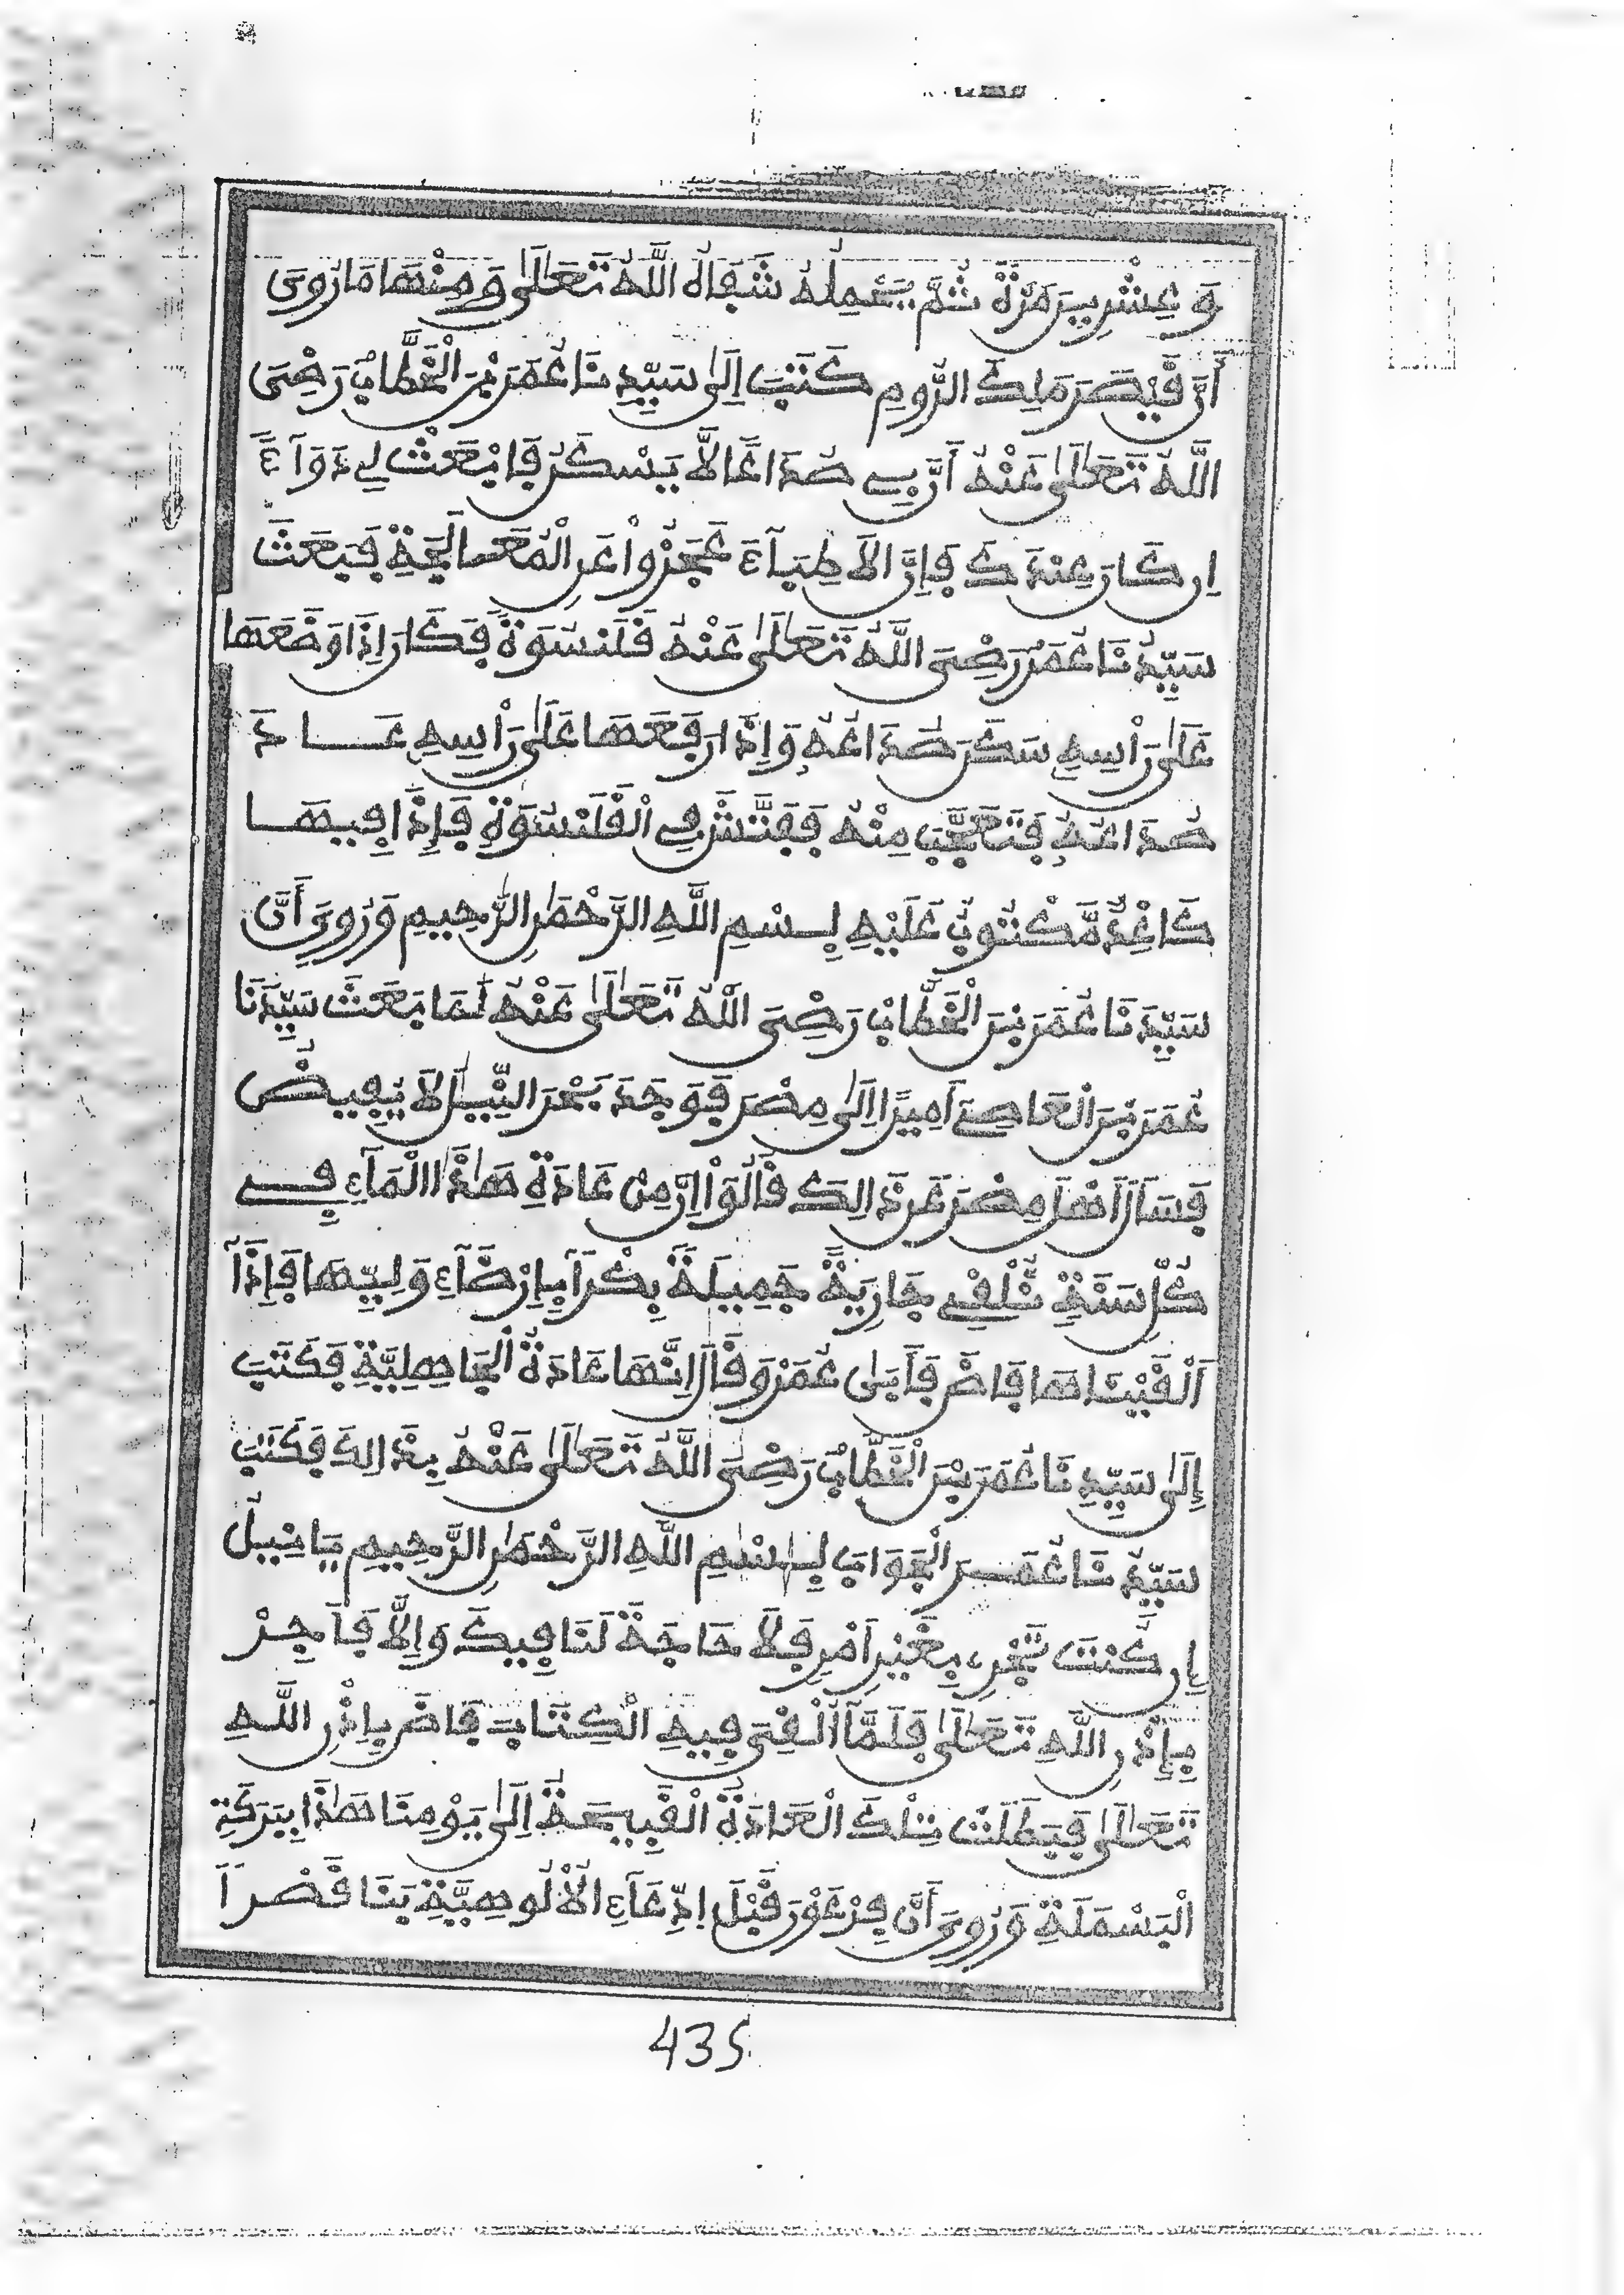 وَعِشْرِينَ مَرَّةً ثُمَّ يَحْمِلُهُ شَفَاهُ اللَّهُ تَعَالَىٰ وَمِنْهَا مَا رُوِيَ
أَنَّ قَيْصَرَ مَلِكَ الرُّومِ كَتَبَ إِلَىٰ سَيِّدِنَا عُمَرَ بْنِ الْخَطَّابِ رَضِيَ
اللَّهُ تَعَالَىٰ عَنْهُ أَنَّ بِي صُدَاعًا لَا يَسْكُنُ فَابْعَثْ لِي دَوَآءً
إِن كَانَ عِندَكَ فَإِنَّ الْأَطِبَآءَ عَجَزُوا عَنِ الْمُعَالَجَةِ فَبَعَثَ
سَيِّدُنَا عُمَرُ رَضِيَ اللَّهُ تَعَالَىٰ عَنْهُ قَلَنسُوَةً فَكَانَ إِذَا وَضَعَهَا
عَلَىٰ رَأْسِهِ سَكَنَ صُدَاعُهُ وَإِذَا رَفَعَهَا عَلَىٰ رَأْسِهِ عَادَ
صُدَاعُهُ فَتَعَجَّبَ مِنْهُ فَفَتَّشَ فِي الْقَلَنْسُوَةِ فَإِذَا فِيهَا
كَاغِدٌ مَّكْتُوبٌ عَلَيْهِ بِسْمِ اللَّهِ الرَّحْمَٰنِ الرَّحِيمِ وَرُوِيَ أَنَّ
سَيِّدَنَا عُمَرَ بْنَ الْخَطَّابِ رَضِيَ اللَّهُ تَعَالَىٰ عَنْهُ لَمَّا بَعَثَ سَيِّدَنَا
عُمَرَ بْنَ الْعَاصِي أَمِيرًا إِلَىٰ مِصْرَ فَوَجَدَ بَحْرَ النِّيلِ لَا يَفِيضُ
فَسَأَلَ أَهْلَ مِصْرَ عَن ذَالِكَ قَالُوا إِنَّ مِنْ عَادَةِ هَٰذَا الْمَآءِ فِي
كُلِّ سَنَةٍ تُلْقَىٰ جَارِيَةٌ جَمِيلَةٌ بِكْرًا بِإِرْضَآءِ وَلِيِّهَا فَإِذَآ
أَلْقَيْنَاهَا فَاضَ فَأَبَىٰ عُمَرُ وَقَالَ إِنَّهَا عَادَةُ الْجَاهِلِيَّةِ فَكَتَبَ
إِلَىٰ سَيِّدِنَا عُمَرَ بْنِ الْخَطَّابِ رَضِيَ اللَّهُ تَعَالَىٰ عَنْهُ بِذَالِكَ فَكَتَبَ
سَيِّدُنَا عُمَرُ الْجَوَابَ بِسْمِ اللَّهِ الرَّحْمَٰنِ الرَّحِيمِ يَا نِيلُ
إِن كُنتَ تَجْرِي بِغَيْرِ أَمْرٍ فَلَا حَاجَةَ لَنَا فِيكَ وَإِلَّا فَآجْرِ
بِإِذْنِ اللَّهِ تَعَالَىٰ فَلَمَّآ أَلْقَىٰ فِيهِ الْكِتَابَ فَاضَ بِإِذْنِ اللَّهِ
تَعَالَىٰ فَبَطَلَتْ تِلْكَ الْعَادَةُ الْقَبِيحَةُ إِلَىٰ يَوْمِنَا هَٰذَا بِبَرَكَةِ
الْبَسْمَلَةِ وَرُوِيَ أَنَّ فِرْعَوْنَ قَبْلَ ادِّعَآءِ الْأُلُوهِيَّةِ بَنَا قَصْرًا
435